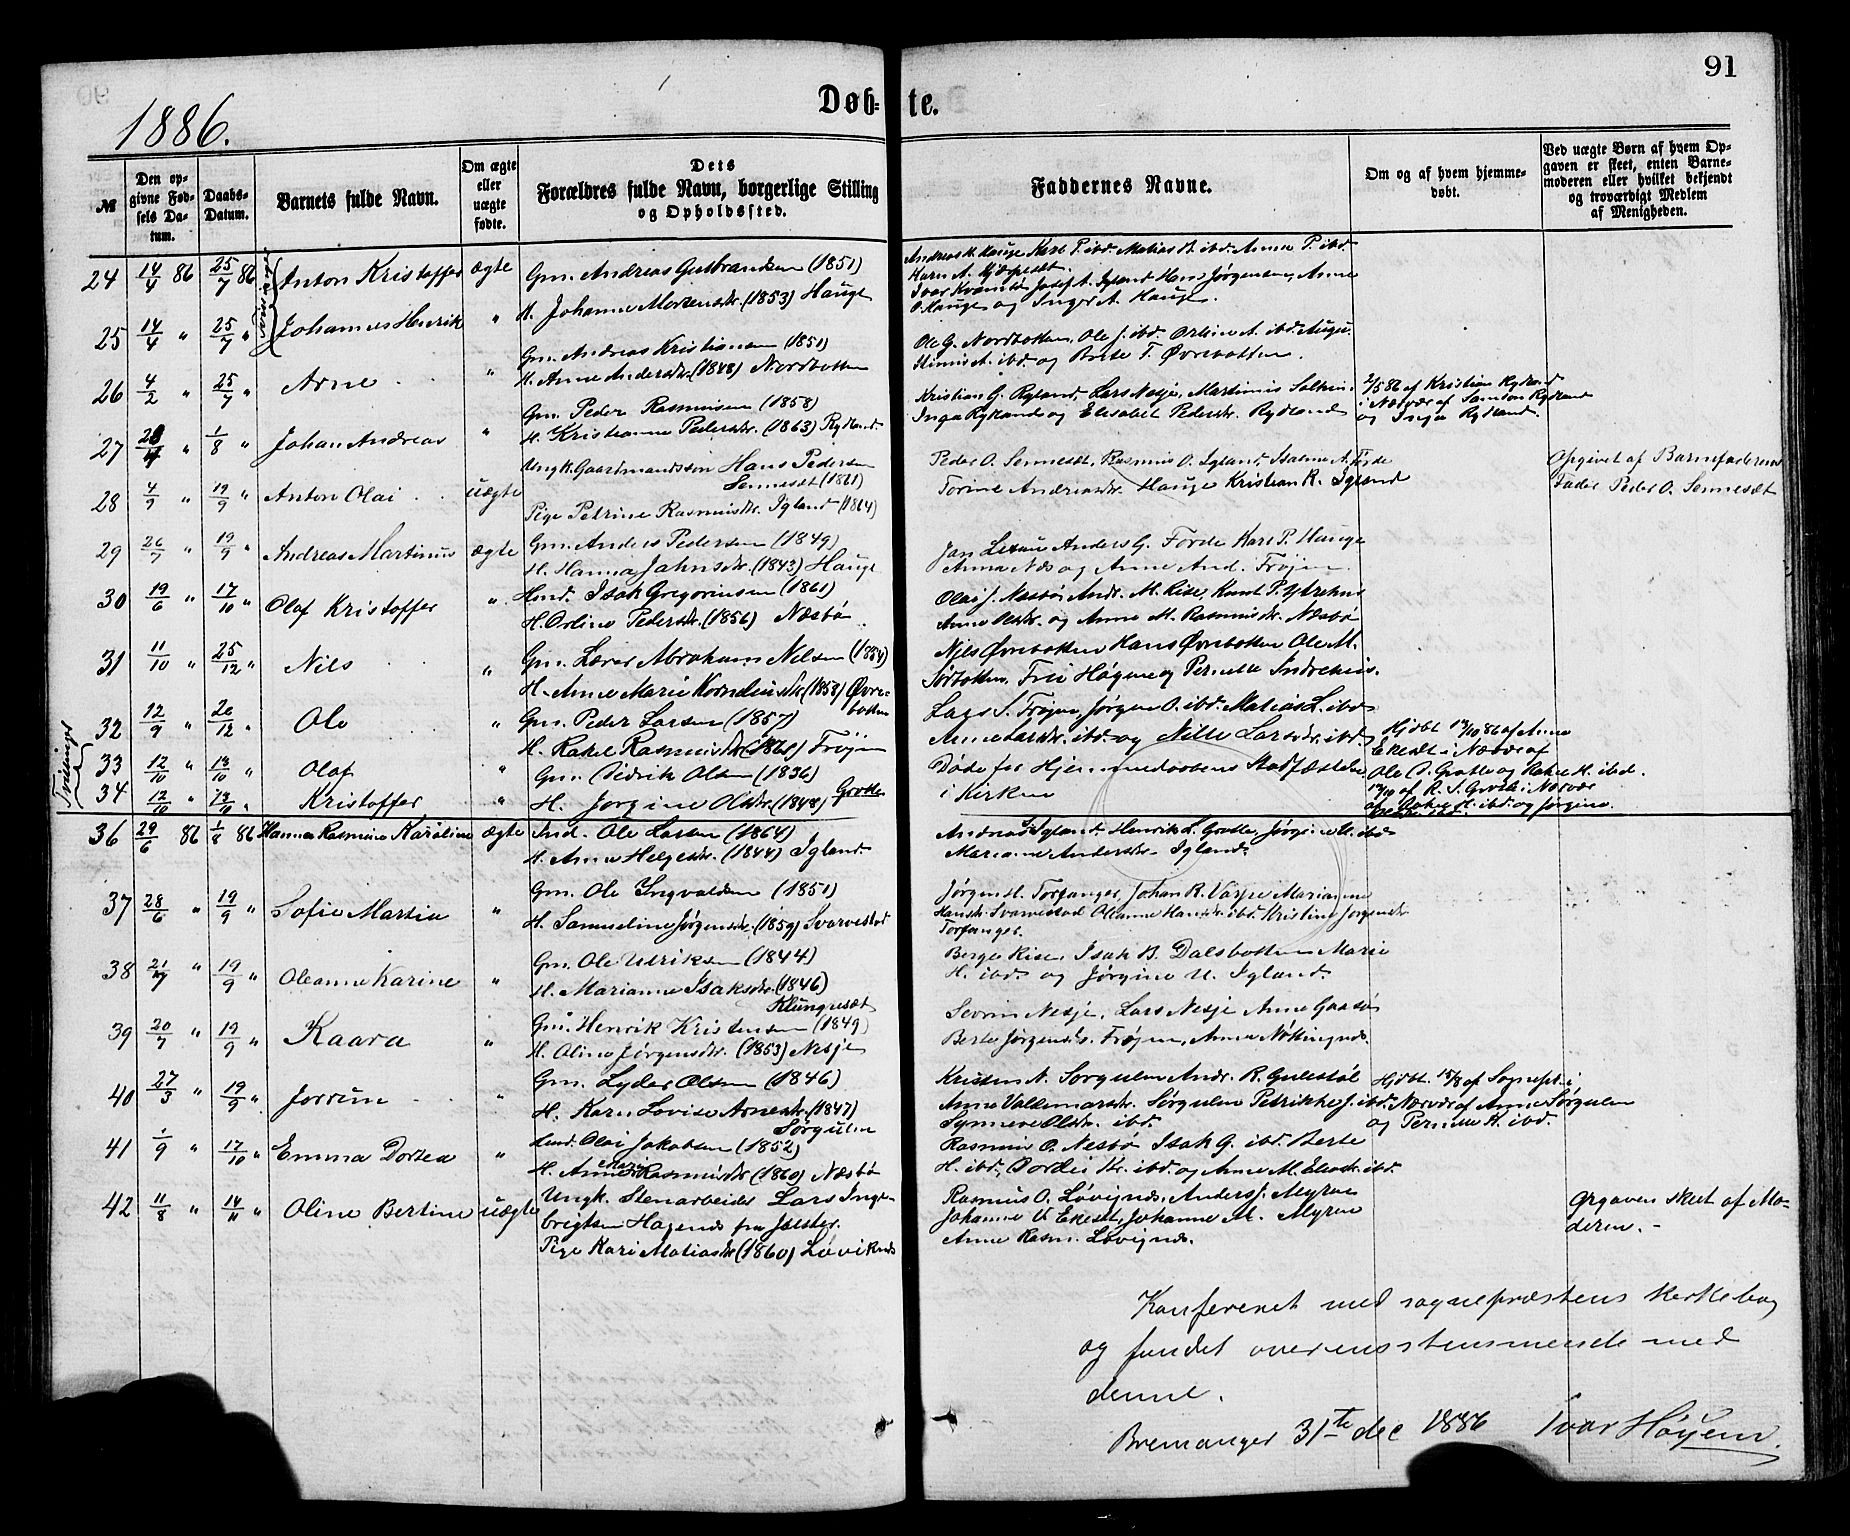 91
1886.
Døb- te.
№
Den opgivne Fødsels Datum.
Daabs-Datum.
Barnets fulde Navn.
Om ægte eller uægte fødte.
Dets Forældres fulde Navn, borgerlige Stilling og Opholdssted.
Faddernes Navne.
Om og af hvem hjemmedøbt.
Ved uægte Børn af hvem Opgaven er skeet, enten Barnemoderen eller hvilket bekjendt og troværdigt Medlem af Menigheden.
24 14/4 86 25/7 86 Anton Kristoffer ægte Gm. Andreas Gutbrandsen (1851)
H. Johanne Mortensdr. (1853) Hauge
Andreas H. Hauge Karl P. ibd. Matias B. ibd. Anna P. ibd.
25 14/4 " 25/7 " Johannes Henrik "
Ivar Josef A. Igland Hans Jørgensen, Anne
O. Hauge og Inger A. Hauge.
26 4/2 " 25/7 " Arne "
Gm. Andreas Kristiansen (1851)
H. Anne Andersdr. (1848) Nordbotten
Ole G. Nordbotten, Ole J. ibd. Orline A. ibd. Augu-
stinus A. ibd. og Brite T. Øvrebotten.
27 1/8 " Johan Andreas "
Gm. Peder Rasmusen (1858)
H. Kristianne Pedersdr. (1863) Rydland.
Kristian G. Ryland, Lars Nesje, Martinus
Inga Ryland og Elisabet Pedersdr. Rydland
2/5 86 af Kristian Rydland
i Nærvær af Samson Rydland
og Inga Rydland.
28 4/7 " 19/9 " Anton Olai uægte
Ungk. Gaardmandssøn Hans Pedersen
Sennesæt (1861)
Pige Petrine Rasmusdr. Igland (1864)
Peder O. Sennesæt, Rasmus O. Igland, Isak A. Førde
Torine Andreasdr. Hauge Kristian R. Igland
Opgivet af Barnefaderens
Fader Peder O. Sennesæt
29 26/7 " 19/9 " Andreas Martinus ægte
Gm. Anders Pedersen (1849)
H. Hanna Jahnsdr. (1843) Hauge
Jan Anders G. Førde Karl P. Hauge
Anna Næs og Anne And. Frøjen.
30 19/6 " 17/10 " Olaf Kristoffer "
Hmd. Isak Gregoriusen (1861)
H. Orline Pedersdr. (1856) Næsbø.
Olai J. Næsbø, Andr. M. Rise, Knut P. Ytrehus
Anne Olsdr. og Anne M. Rasmusdr. Næsbø
31 11/10 " 25/12 " Nils "
Gm. Lærer Abraham Nilsen (1854)
H. Anne Marie Korneliusdr. (1858) Øvre-
botten
Nils Øvrebotten Hans Øvrebotten Ole M.
Sørbotten, Høyne og Pernille Indrehus.
32 12/9 " 26/12 " Ole "
Gm. Peder Larsen (1857)
H. Rakel Rasmusdr. (1860) Frøjen
Lars S. Frøjen, Jørgen O. ibd. Matias L. ibd.
Anne Larsdr. ibd. og Nille Larsdr. ibd.
Tvillinger
33 12/10 " 13/10 " Olaf "
34 12/10 " 13/10 " Kristoffer "
Gm. Didrik Olsen (1836)
H. Jørgine Olsdr. (1848) Grotle
Døde før Hjemmedaabens Stadfæstelse
i Kirken
Hjdbt. 13/10 86 af Anne
Ekesæt i Nærvær af
Ole D. Grotle og Rakel H. ibd.
13/10 af R. S. Grotle i Nærvær
af Rakel H. ibd. og Jørgine
36 29/6 86 1/8 86 Hanna Rasmine Karoline ægte
Ind. Ole Larsen (1864)
H. Anne Helgesdr. (1844) Igland.
Andreas S. Igland, Henrik L. Grotle, Jørgine U. ibd.
Marianne Andersdr. Igland.
37 28/6 " 19/9 " Sofie Martia "
Gm. Ole Ingvaldsen (1851)
H. Samueline Jørgensdr. (1859) Svarvestad
Jørgen H. Torfanger, Johan R. Marianne
Hansdr. Svarvestad Oleanne Hansdr. ibd. Kristine Jørgensdr.
Torfanger.
38 21/7 " 19/9 " Oleanne Karine "
Gm. Ole Ulriksen (1844)
H. Marianne Isaksdr. (1846)
Klungresæt
Berge Rise, Isak B. Dalsbotten Marie
H. ibd. og Jørgine U. Igland.
39 20/7 " 19/9 " Kaara "
Gm. Henrik Kristensen (1849)
H. Oline Jørgensdr. (1853) Nesje
Sevrin Nesje, Lars Nesje Anne Gaasø
Berte Jørgensdr. Frøjen, Anna Nøttingnes.
40 27/3 " 19/9 " Jorrun "
Gm. Lyder Olsen (1846)
H. Karen Lovise Arnesdr. (1847)
Sørgulen
Kristen N. Sørgulen Andr. R. Gulestøl
Anne Valdemarsdr. Sørgulen Petrikke J. ibd.
Synneve Olsdr. ibd.
Hjdbt. 15/8 af Sognepr. i
Nærvær af Anne Sørgulen
og Pernille H. ibd.
41 1/9 " 17/10 " Emma Dortea "
Hmd. Olai Jakobsen (1852)
H. Anne Marie Rasmusdr. (1860) Næsbø
Rasmus O. Nesbø Isak G. ibd. Berte
H. ibd., Dordei dr. ibd. og Anne M. Elesdr. ibd.
42 11/8 " 14/11 " Oline Bertine uægte
Ungk. Stenarbeider Lars Inge-
brigtsen Hagenes fra Jølster.
Pige Kari Matiasdr. (1860) Løviknes
Rasmus O. Løvignes, Anders J. Myrne
Johanne U. Ekesæt, Johanne M. Myrne
Anne Rasm. Løvignes.
Opgaven skeet af Mo-
deren.-
Konfereret med sognepræstens kirkebog
og fundet overensstemmende med
denne.
Bremanger 31te dec 1886 Ivar Høyem.